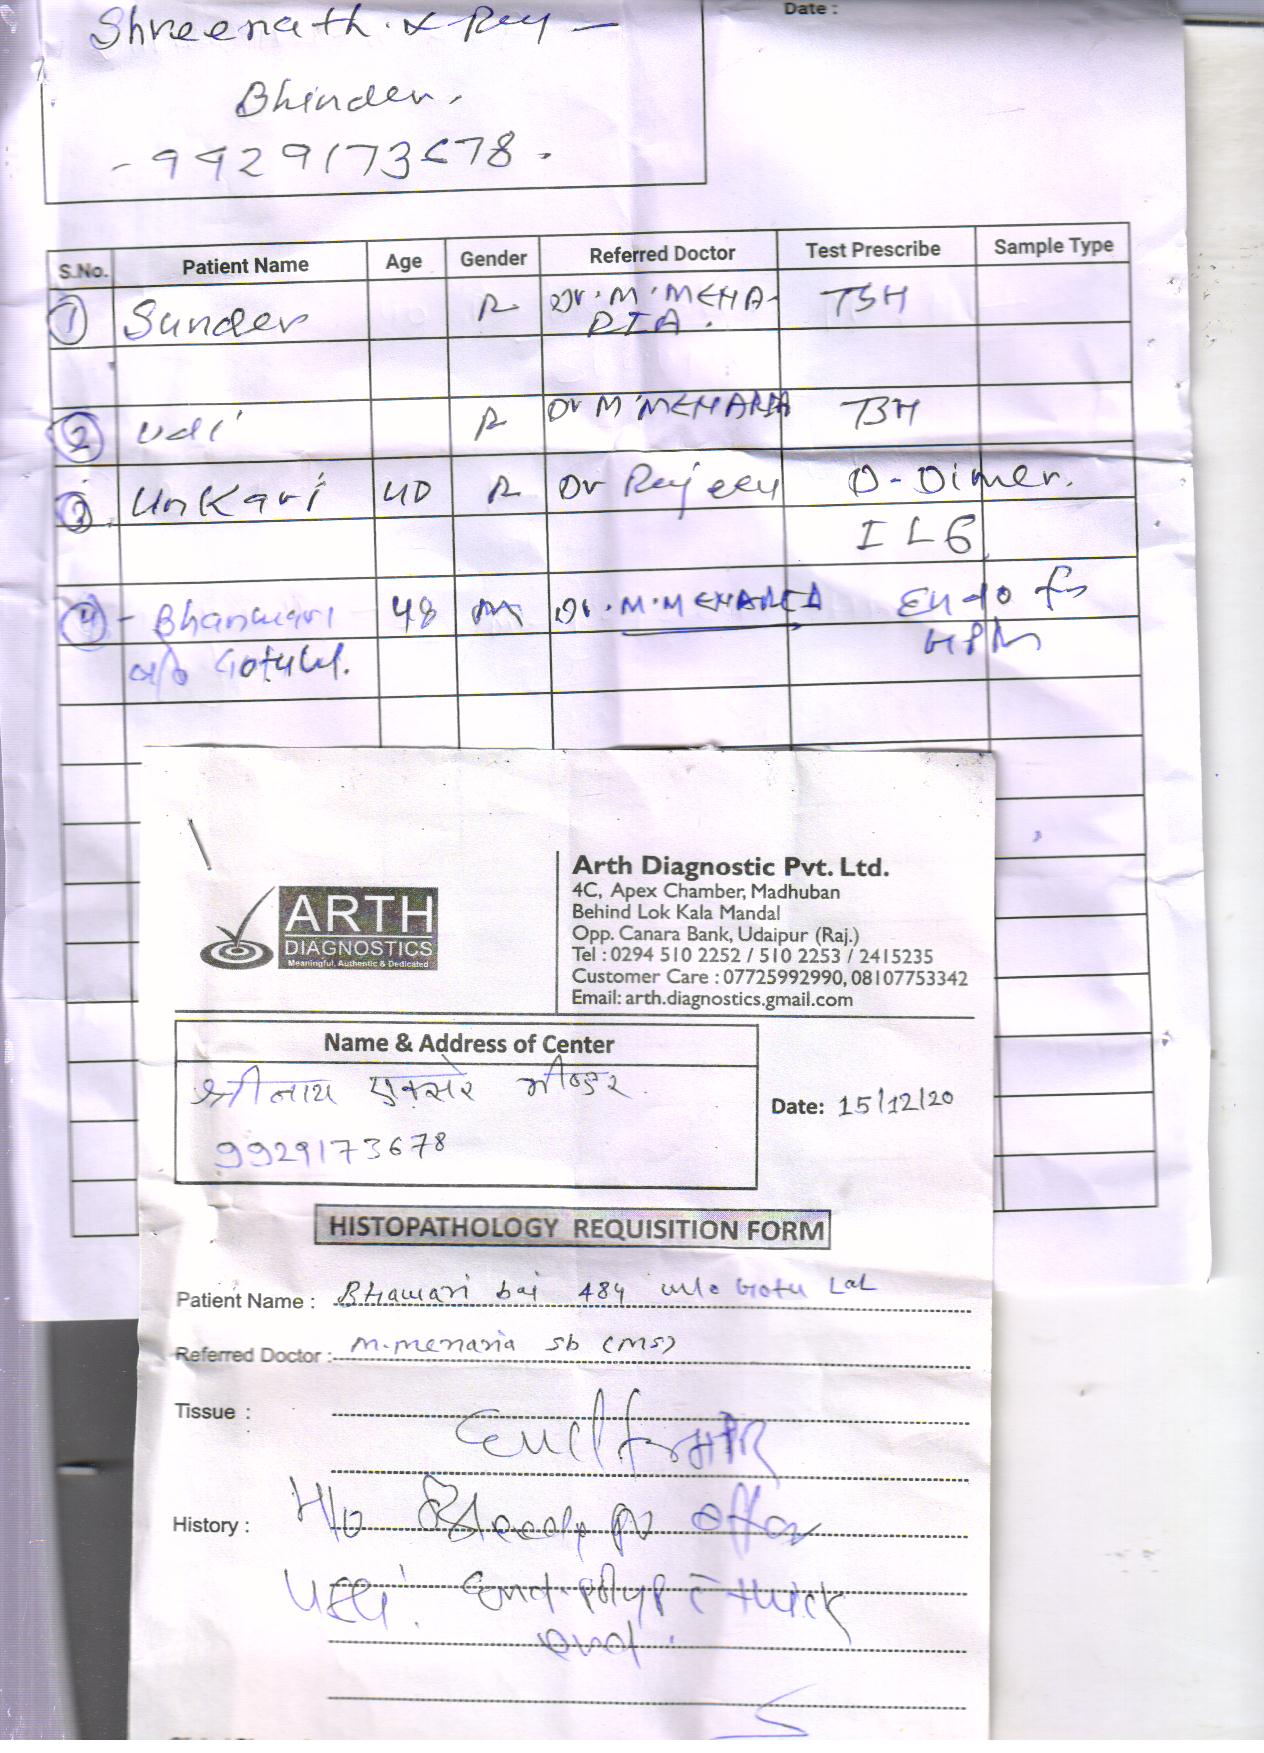 Date :
Shreenath. x Ray -
Bhinder.
- 9929173678.
S.No. Patient Name Age Gender Referred Doctor Test Prescribe Sample Type
1 Sunder Dr. M. MENA- TSH
RIA.
2 Udi Dr M MENARIA TSH
3 Unkari 40 Dr Rajeev D-Dimer.
IL6
4 - Bhanwari 48 Dr. M. MENARIA Endo for
HPR
w/o Gotulal.
ARTH
DIAGNOSTICS
Meaningful, Authentic & Dedicated
Arth Diagnostic Pvt. Ltd.
4C, Apex Chamber, Madhuban
Behind Lok Kala Mandal
Opp. Canara Bank, Udaipur (Raj.)
Tel : 0294 510 2252 / 510 2253 / 2415235
Customer Care : 07725992990, 08107753342
Email: arth.diagnostics.gmail.com
Name & Address of Center
श्रीनाथ एक्सरे भीण्डर
Date: 15/12/20
9929173678
HISTOPATHOLOGY REQUISITION FORM
Patient Name : Bhawari bai 48y w/o Gotu Lal
Referred Doctor : M. menaria sb (MS)
Tissue :
End for HPR
History : H/o Bleeding PV
End. polyp c thick
end.